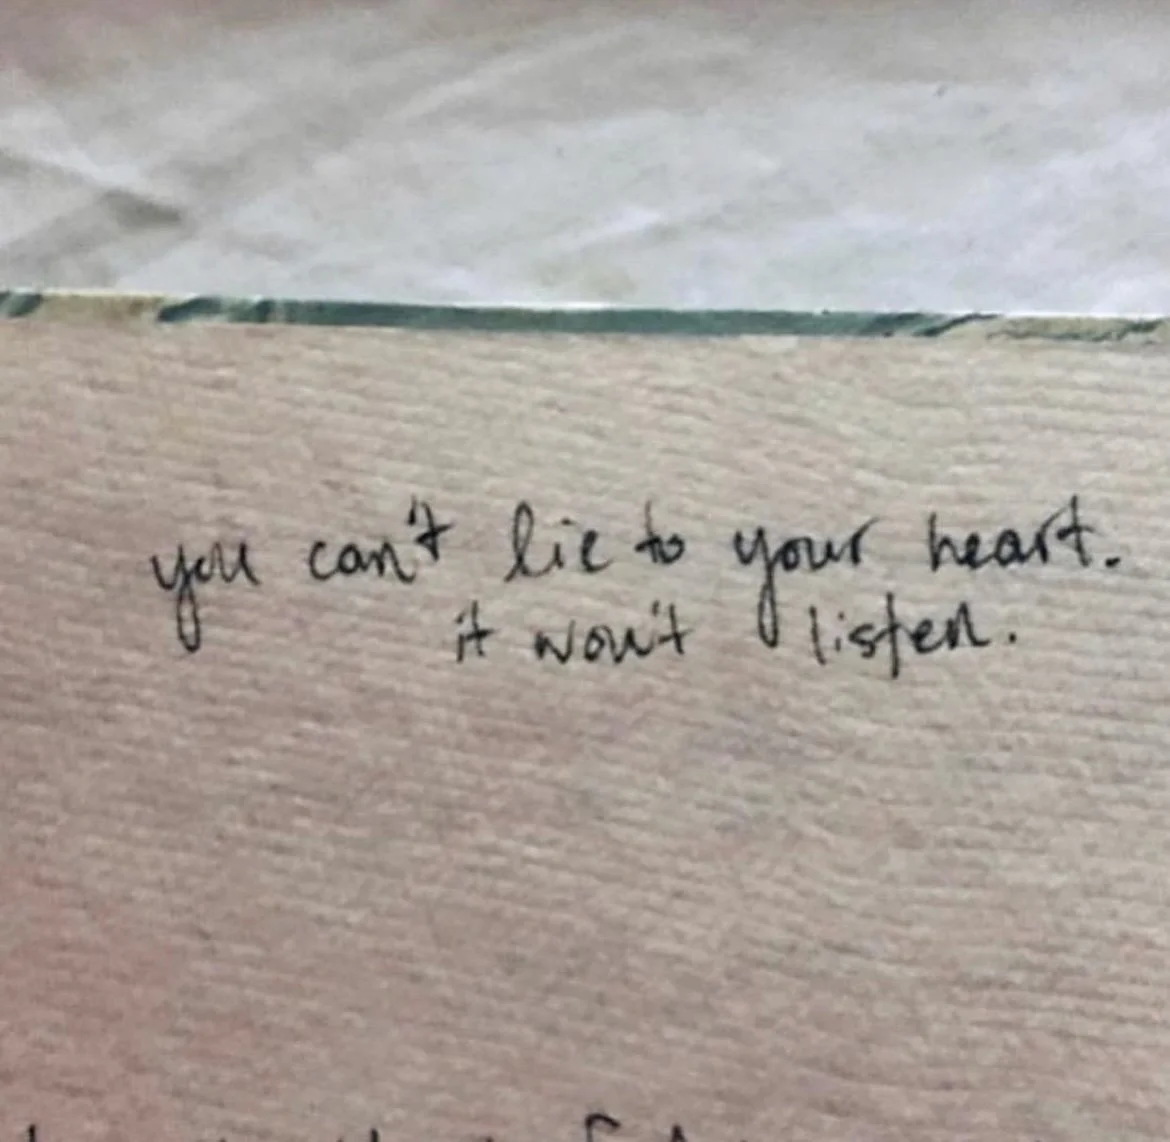 you can't lie to your heart.
it won't listen.